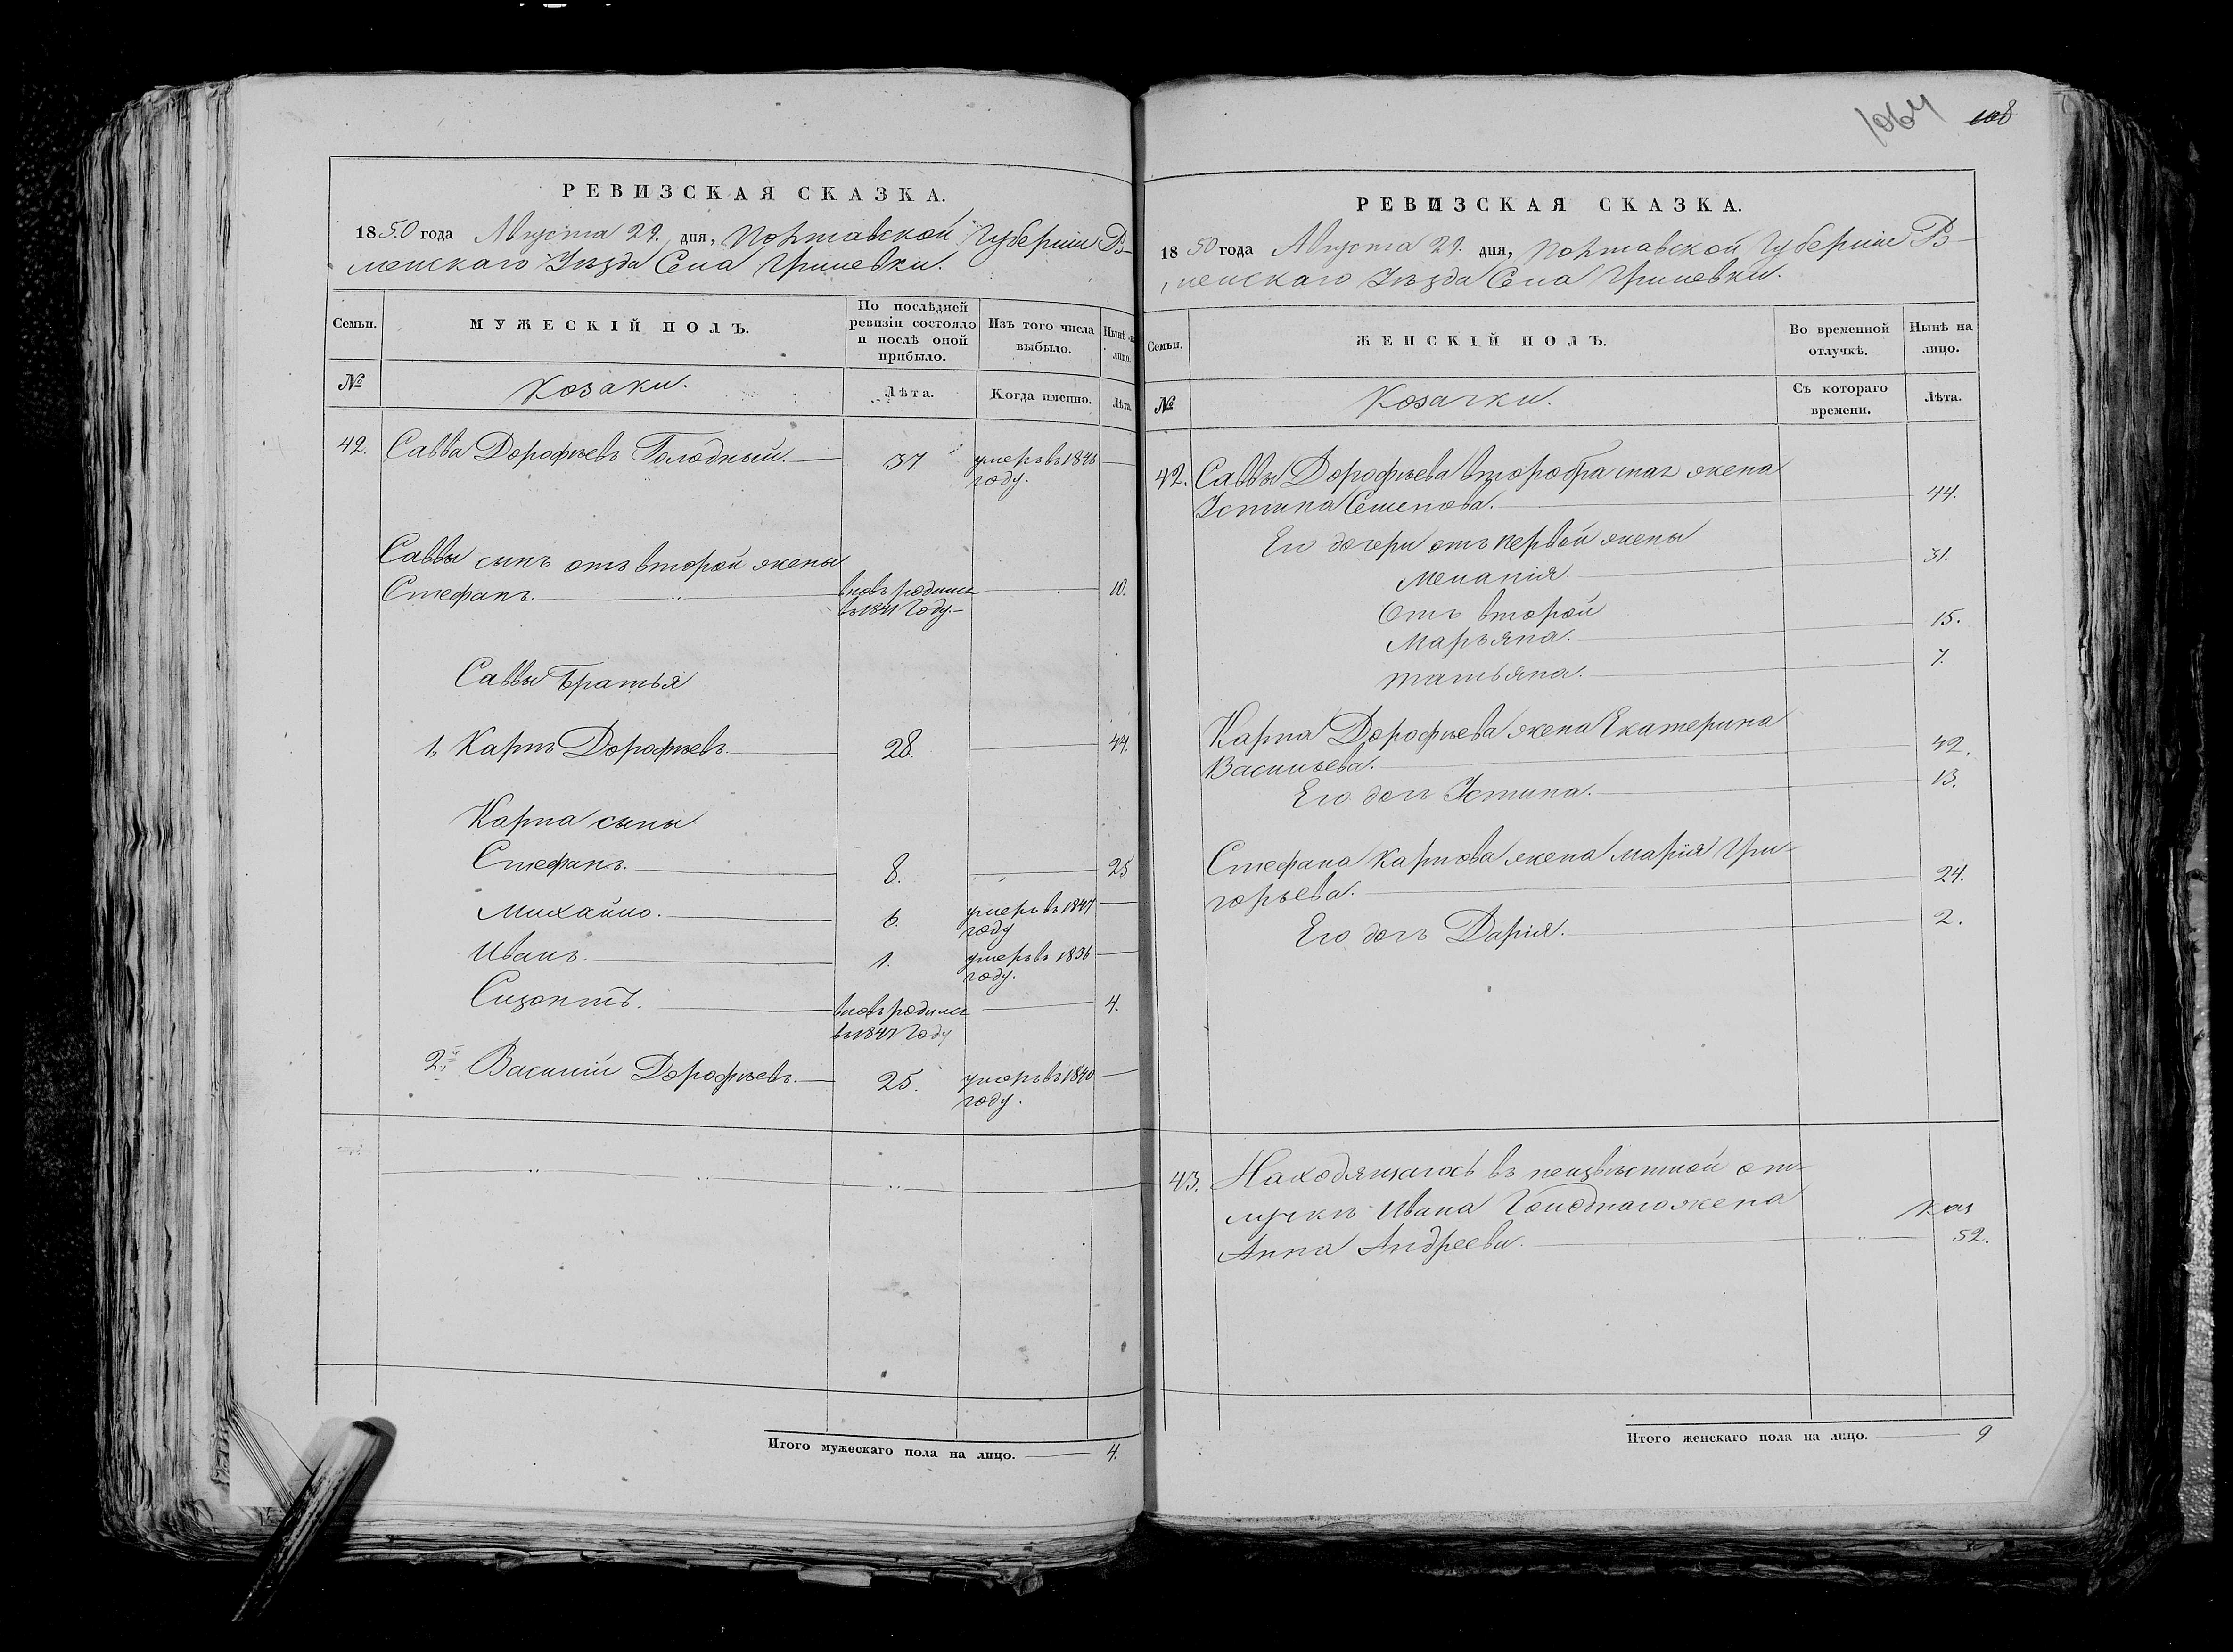 РЕВИЗСКАЯ СКАЗКА.
1850 года Августа 29. дня, Полтавской Губерніи Р-
менскаго Уѣзда Села Гриневки.
Семьи.
МУЖЕСКІЙ ПОЛЪ.
По послѣдней ревизіи состояло и послѣ оной прибыло.
Изъ того числа выбыло.
Нынѣ на лицо.
№
Козаки.
Лѣта.
Когда именно.
Лѣта.
42. Савва Дорофѣевъ Голодный. 37. умеръ въ 1848
году.
Саввы сынъ отъ второй жены
Стефанъ. вновь родился 10.
въ 1841 Году.
Саввы Братья
1, Карпъ Дорофѣевъ. 28. 44.
Карпа сыны
Стефанъ. 8. 25
Михайло. 6. умеръ въ 1847
году
Иванъ. 1. умеръ въ 1836
году.
Сизонтъ. вновь родился 4.
въ 1847 Году
2й Василій Дорофѣевъ. 25. умеръ въ 1840
году.
Итого мужескаго пола на лицо. 4.
1064 108
РЕВИЗСКАЯ СКАЗКА.
1850 года Августа 29. дня, Полтавской Губерніи Р-
менскаго Уѣзда Села Гриневки.
Семьи.
ЖЕНСКІЙ ПОЛЪ.
Во временной отлучкѣ.
Нынѣ на лицо.
№
Козачки.
Съ котораго времени.
Лѣта.
42. Саввы Дорофѣева второбрачная жена
Устина Семенова. 44.
Его дочери отъ первой жены
Меланія 31.
Отъ второй
Марьяна. 15.
Татьяна. 7.
Карпа Дорофѣева жена Екатерина
Васильева. 42.
Его дочь Устина. 13.
Стефана Карпова жена Марія Гри-
горьева. 24.
Его дочь Дарія. 2.
43. Находящагося въ неизвѣстной от-
лучкѣ Ивана Голоднаго жена
Анна Андреева. 52.
Итого женскаго пола на лицо. 9